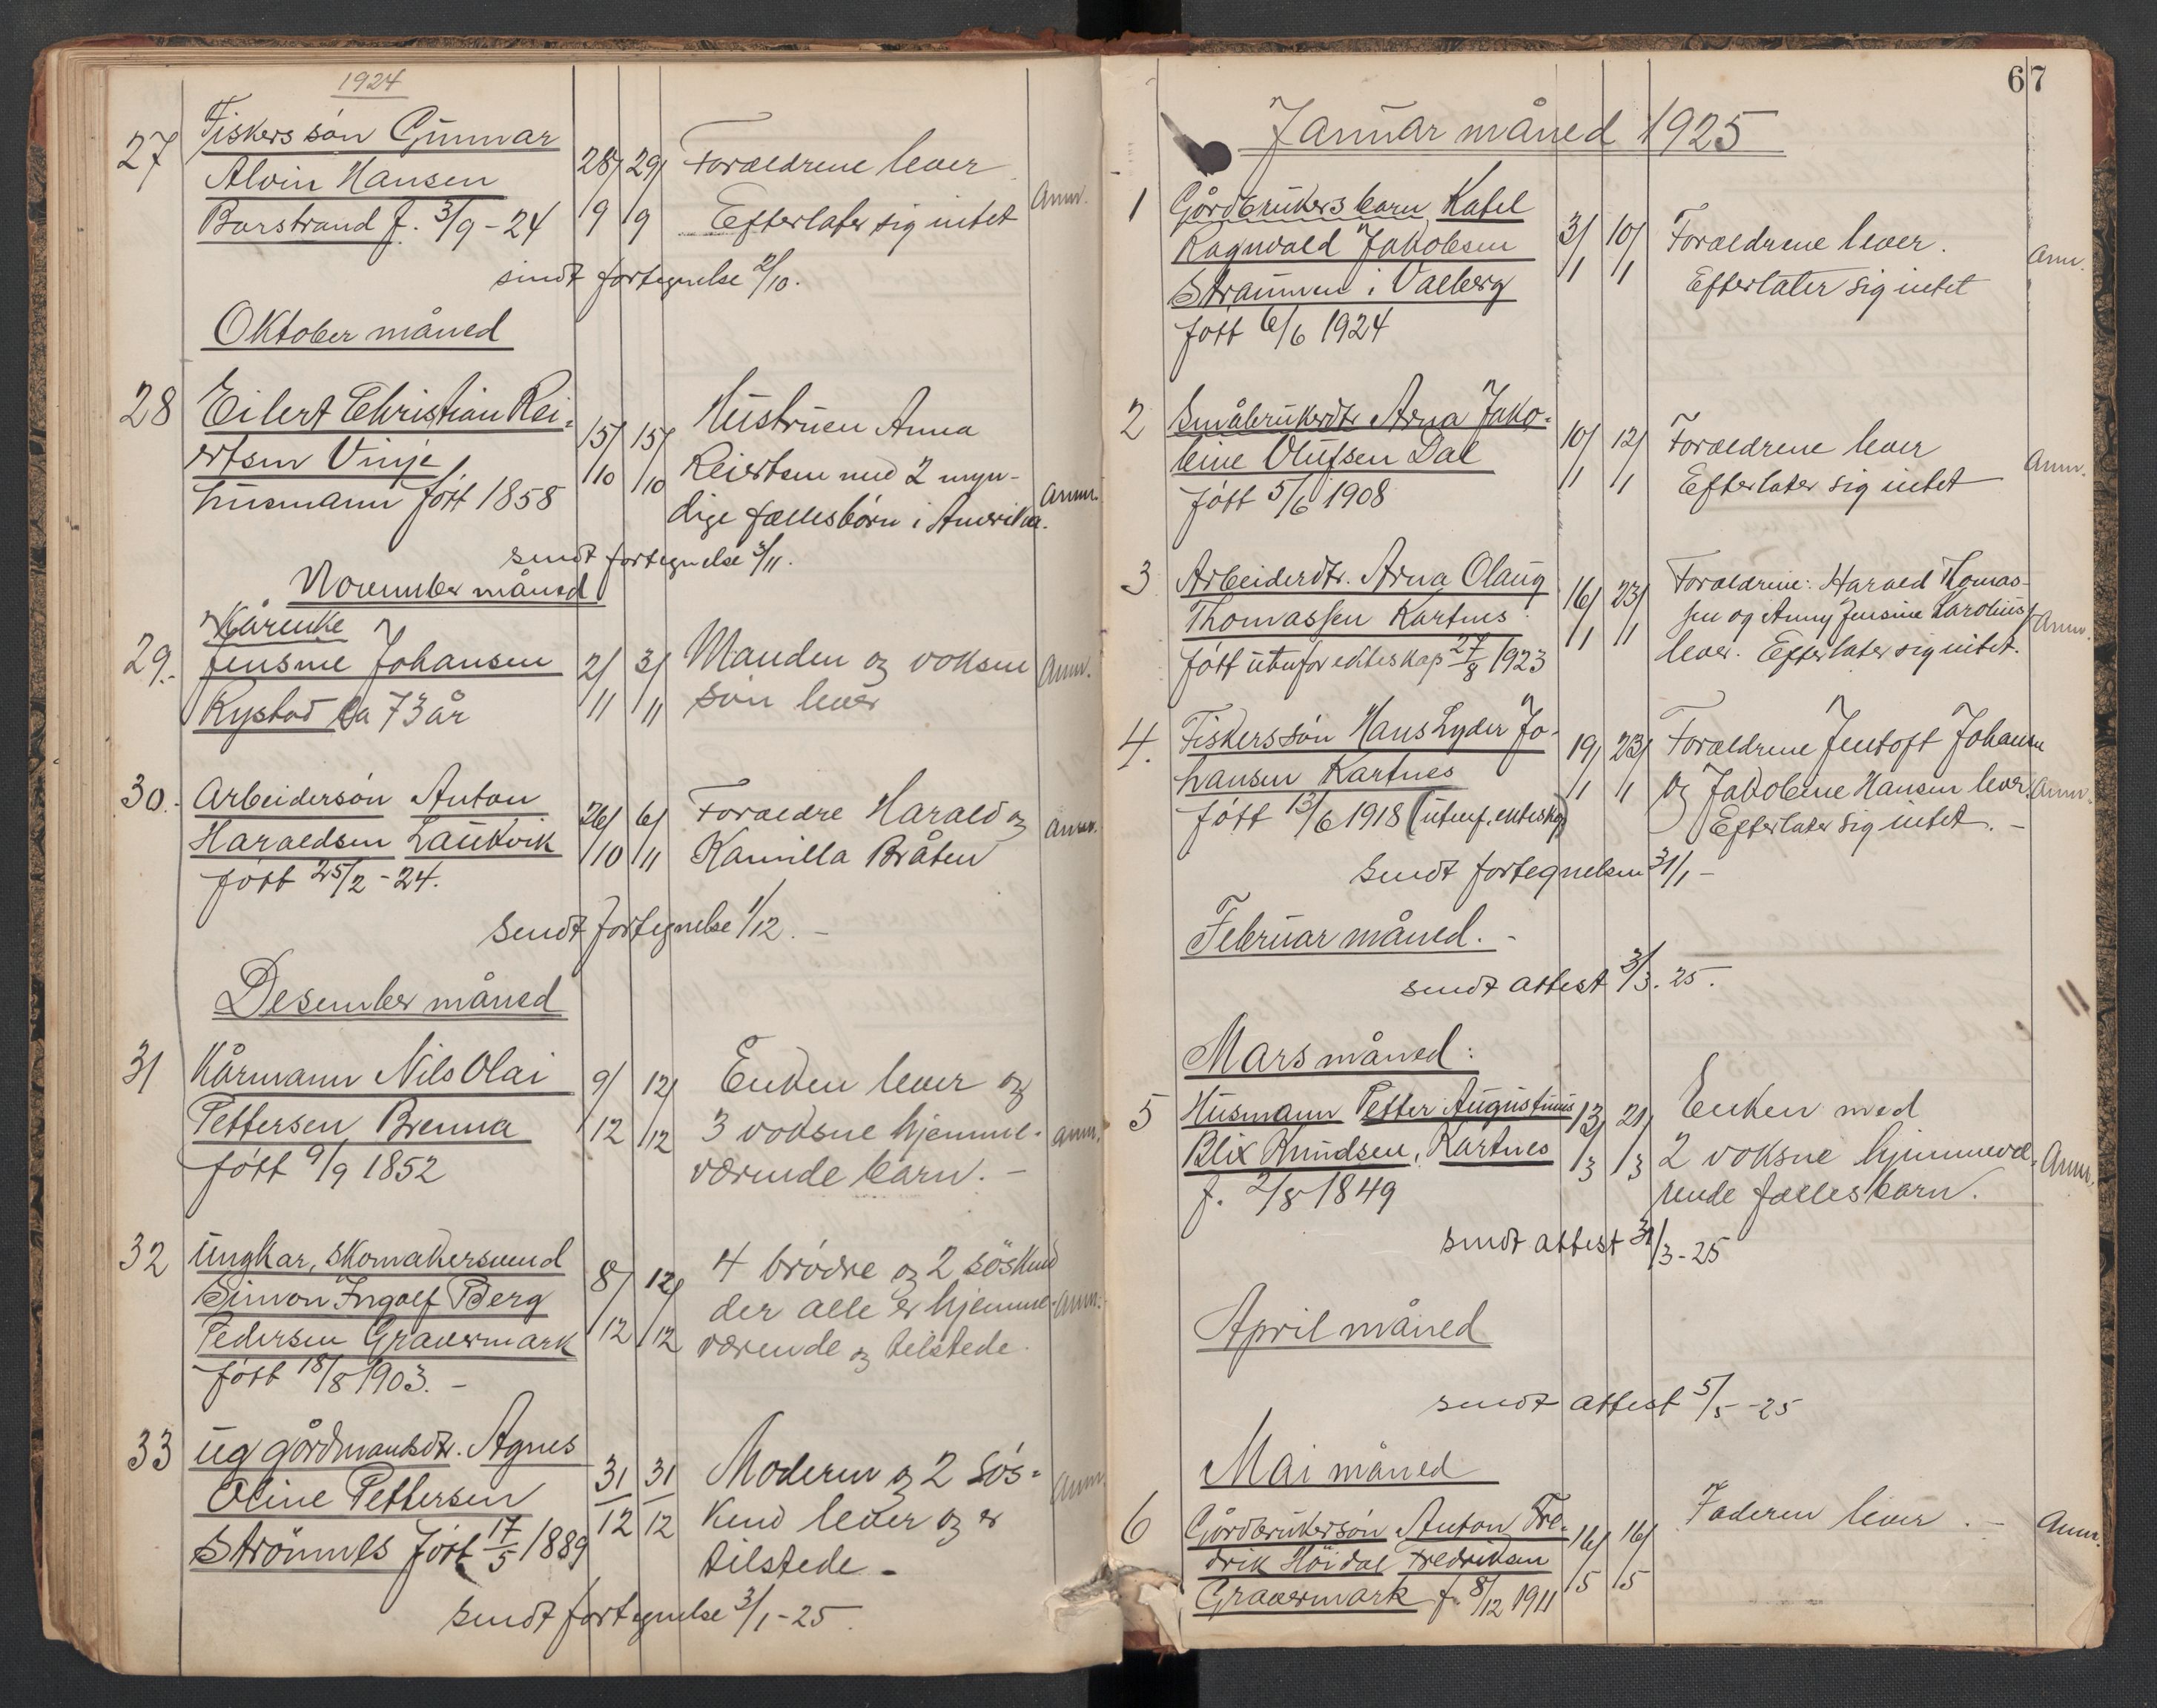 1924
27 Fiskerssön Gunnar
Alvin Hansen
Borstrand f. 3/9 - 24
28/9 29/9
Foræeldrene lever
Efterlater sig intet
Anm.
sendt fortegnelse 2/10.
Oktober måned
28 Eilert Christian Rei-
ertsen Vinje
husmann fött 1858
15/10 15/10
Hustruen Anna
Reiertsen med 2 myn-
dige fællesbörn i Amerika.
Anm.
sendt fortegnelse 3/11.
November måned
29.- Kårenke
Jensine Johansen
Rystad ca 73 år
2/11 3/11
Manden og voksne
sön lever
Anm.
30.- Arbeidersön Anton
Haraldsen Laukvik
fött 25/2 - 24.
26/10 6/11
Foræeldre Harald og
Kamilla Bråten
Anm.
Sendt fortegnelse 1/12. -
Desember måned
31 Kårmann Nils Olai
Pettersen Brenna
fött 9/9 1852
9/12 12/12
Enken lever og
3 voksne hjemme-
værende barn. -
Anm.
32 Ungkar, skomakersvend
Simon Ingolf Berg
Pedersen Gravermark
fött 18/8 1903. -
8/12 12/12
4 brödre og 2 söskend
der alle er hjemme-
værende og tilstede.
Anm.
33 ug gårdmandsdtr. Agnes
Oline Pettersen
Strömnes fött 17/5 1889
31/12 31/12
Moderen og 2 sös-
kend lever og er
tilstede -
Anm
sendt fortegnelse 3/1 - 25.
67
Januar måned 1925
1 Gårdbrukersbarn Kafel
Ragnvald Jakobsen
Straumen i Valberg
fött 6/6 1924
3/1 10/1
Forældrene lever.
Efterlater sig intet
Anm.
2 Småbrukerdtr Arna Jako-
bine Olufsen Dal
fött 5/6 1908
10/1 12/1
Forældrene lever
Efterlater sig intet
Anm.
3 Arbeiderdtr. Arna Olaug
Thomassen Kartnes
fött utenfor ekteskap 27/8 1923
16/1 23/1
Forældrene: Harald Thomas-
sen og Anny Jensine Karolius
lever. Efterlater sig intet.
Anm.
4. Fiskerssön Hans Lyder Jo-
hansen Kartnes
fött 13/6 1918 (utenf. ekteskap)
19/1 23/1
Forældrene Jentoft Johansen
og Jakobine Hansen lever.
Efterlater sig intet. -
Anm.
Sendt fortegnelsen 31/1 -
Februar måned. -
sendt attest 3/3. 25.
Mars måned:
5 Husmann Petter Augustinus
Blix Knudsen, Kartnes
f. 2/8 1849
13/3 21/3
Enken med
2 voksne hjemmevæ-
rende fællesbarn.
Anm.
sendt attest 31/3 - 25
April måned
sendt attest 5/5 - 25
Mai måned
6 Gårdbrukersön Anton Fre-
drik Höidal Fredriksen
Gravermark f. 8/12 1911
16/5 16/5
Faderen lever. -
Anm.